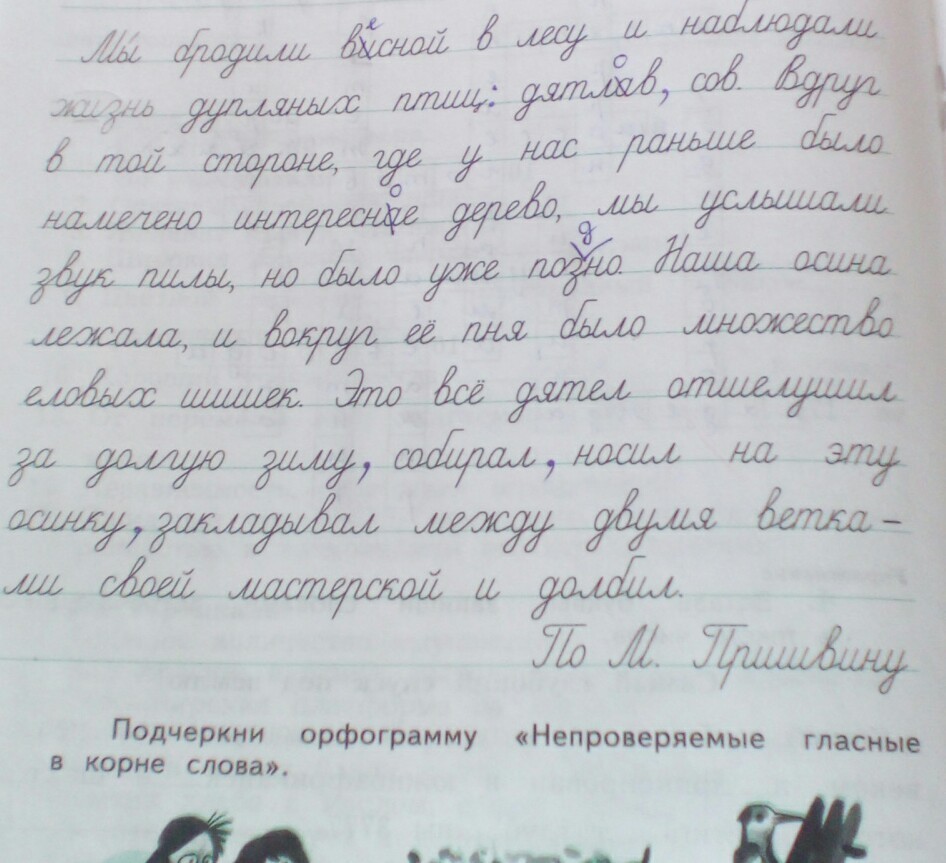 Мы бродили весной в лесу и наблюдали
жизнь дупляных птиц: дятлов, сов. Вдруг
в той стороне, где у нас раньше было
намечено интересное дерево, мы услышали
звук пилы, но было уже поздно. Наша осина
лежала, и вокруг её пня было множество
еловых шишек. Это всё дятел отшелушил
за долгую зиму, собирал, носил на эту
осинку, закладывал между двумя ветка-
ми своей мастерской и долбил.
По М. Пришвину
Подчеркни орфограмму «Непроверяемые гласные
в корне слова».